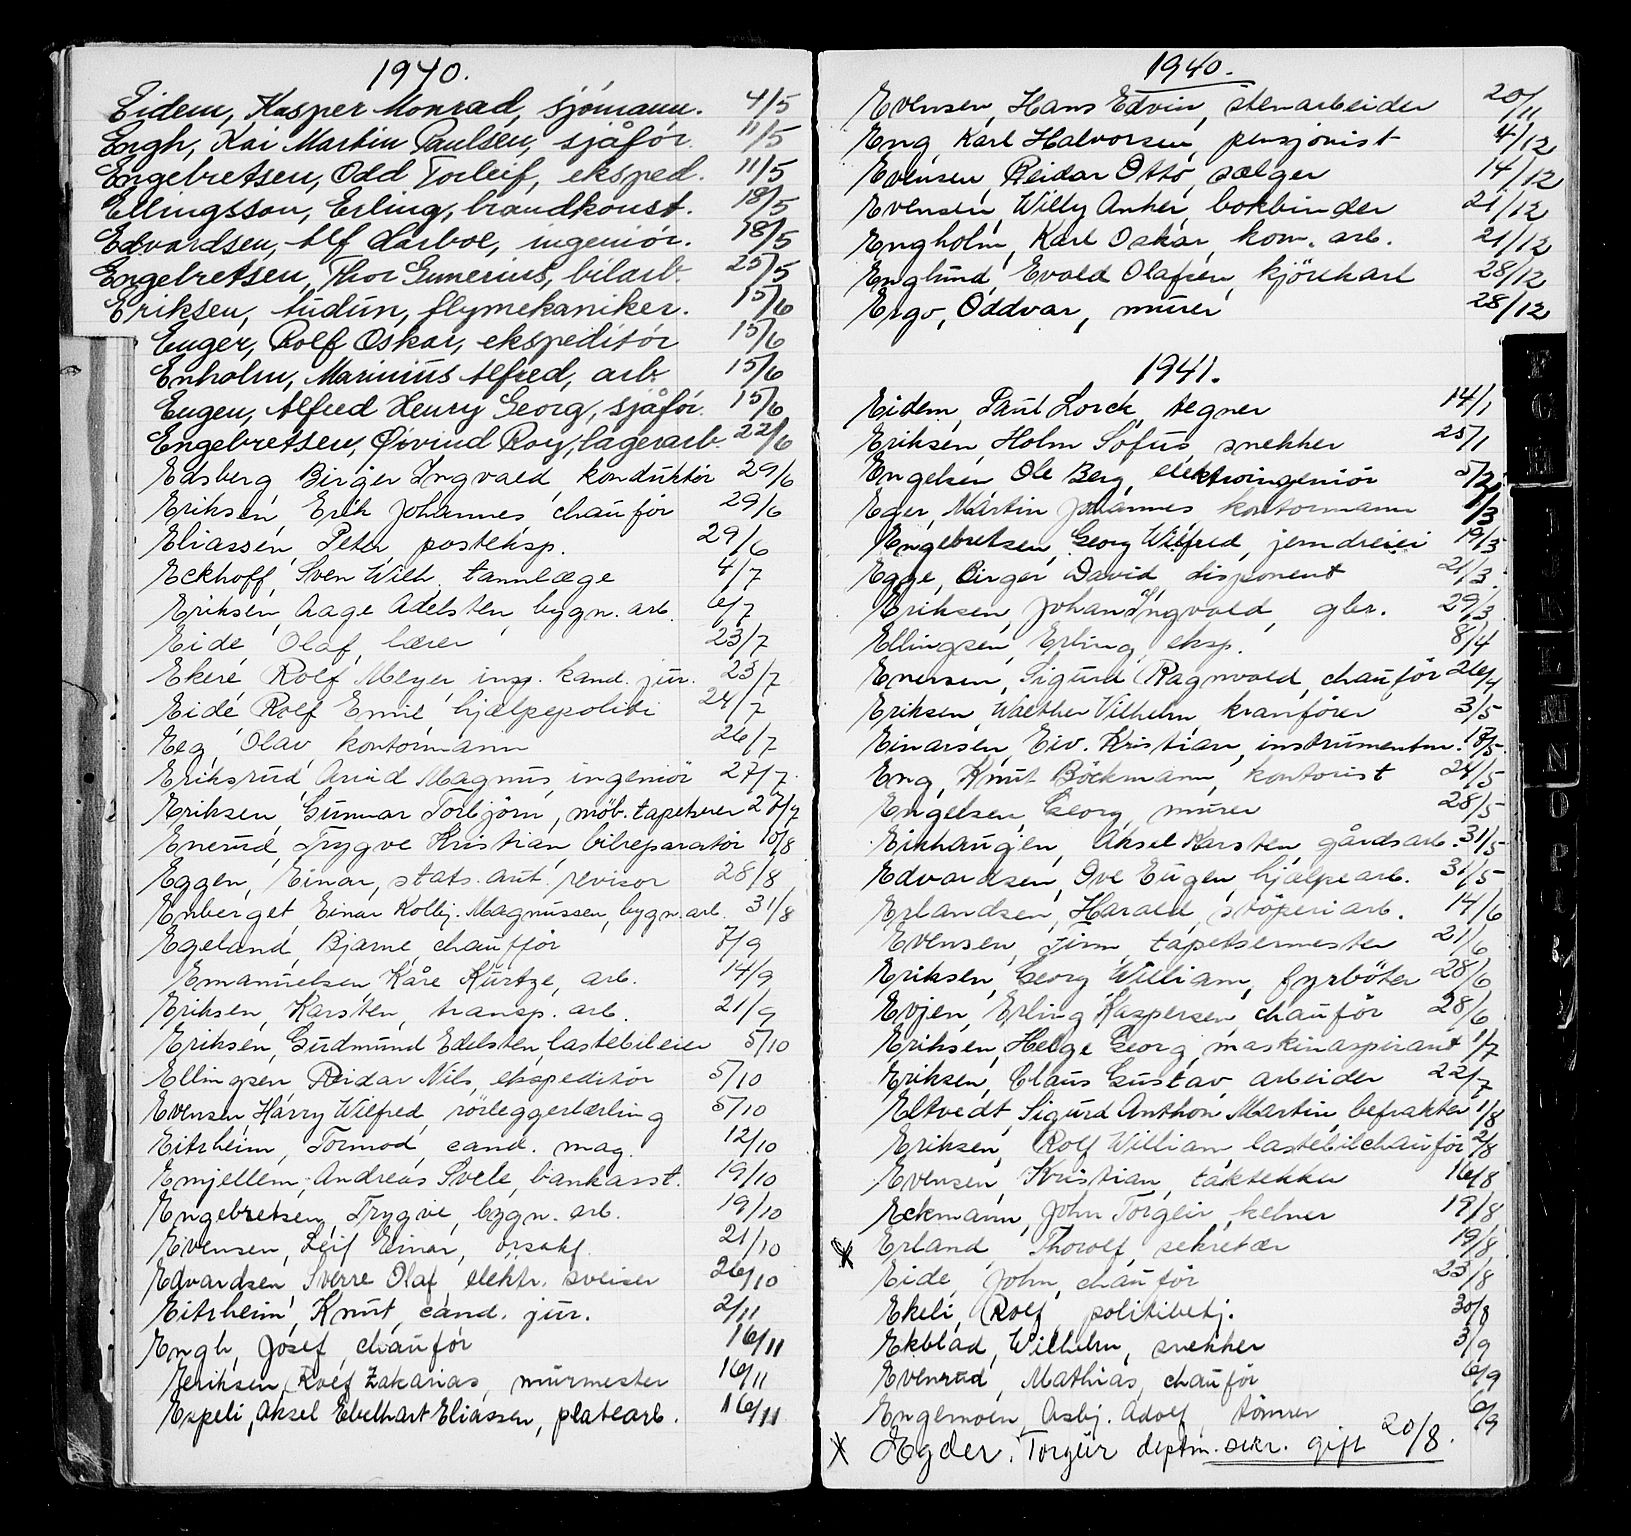 1940.
Eidem, Kasper Monrad, sjömann. 4/5
Engh, Kai Martin Paulsen, sjåför. 11/5
Engebretsen, Odd Torleif, eksped. 11/5
Ellingsson, Erling, brandkonst. 18/5
Edvardsen, Alf Aarboe, ingeniör. 18/5
Engebretsen, Thor Gunerius, bilarb. 25/5
Eriksen, Audun, flymekaniker. 15/6
Enger, Rolf Oskar, ekspeditör 15/6
Enholm, Marinius Alfred, arb. 15/6
Engen, Alfred Henry Georg, sjåför. 15/6
Engebretsen, Øivind Roy, lagerarb. 22/6
Edsberg Birger Ingvald, konduktör 29/6
Eriksen, Erik Johannes chauför 29/6
Eliassen, Peter, posteksp. 29/6
Eckhoff, Sven Wilh. tannlæge 4/7
Eriksen, Aage Adelsten, bygn. arb. 6/7
Eide Olaf, lærer 23/7
Ekeré Rolf Meyer insp. kand. jur. 23/7
Eide Rolf Emil hjælpepoliti 24/7
Eeg, Olav kontormann 26/7
Eriksrud, Arvid Magnus, ingeniör 27/7
Eriksen, Gunnar Torbjörn, möb. tapetserer 27/7
Enerud, Trygve Kristian, bilreparatör 10/8
Eggen, Einar, stats. aut. revisor 28/8
Enberget, Einar Kolbj. Magnussen, bygn. arb. 31/8
Egeland, Bjarne, chaufför 7/9
Emanuelsen Kåre Kurtze, arb. 14/9
Eriksen, Karsten, transp. arb. 21/9
Eriksen, Gudmund Edelsten, lastebileier 5/10
Ellingsen Reidar Nils, ekspeditör 5/10
Evensen, Harry Wilfred, rörleggerlærling 5/10
Eitrheim, Tormod, cand. mag. 12/10
Emjellem, Andreas Svele, bankasst. 19/10
Engebretsen, Trygve, bygn. arb. 19/10
Evensen, Leif Einar, orsakf. 21/10
Edvardsen, Sverre Olaf elektr. sveiser 26/10
Eitrheim, Knut, cand. jur. 2/11
Engh, Josef, chauför 16/11
Eeriksen, Rolf Zakarias, murmester 16/11
Espeli, Aksel Ebelhart Eliassen, platearb. 16/11
1940.
Evensen, Hans Edvin, stenarbeider 20/11
Eng, Karl Halvorsen, pensjonist 4/12
Evensen, Reidar Otto, sælger 14/12
Evensen, Willy Anker, bokbinder 21/12
Engholm, Karl Oskar, kom. arb. 21/12
Englund, Evald Olafsen, kjörekarl 28/12
Ergo, Oddvar, murer 28/12
1941.
Eidem, Paul Lorck, tegner 14/1
Eriksen, Holm Sofus, snekker 25/1
Engelsen Ole Berg, elektroingeniör 5/2
Eger, Martin Johannes kontormann 1/3
Engebretsen, Georg Wilfred, jerndreier 19/3
Egge, Birger David, disponent 21/3
Eriksen, Johan Ingvald, gbr. 29/3
Ellingsen, Erling, eksp. 8/4
Enersen, Sigurd Ragnvald, chauför 26/4
Eriksen, Walther Vilhelm, kranförer 3/5
Einarsen, Eiv. Kristian, instrumentm. 17/5
Eng, Knut Böckmann, kontorist 24/5
Engelsen, Georg, murer 28/5
Eikhaugen, Aksel Karsten gårdsarb. 31/5
Edvardsen, Ove Eugen, hjælpearb. 31/5
Erlandsen, Harald, stöperiarb. 14/6
Evensen, Jim, tapetsermester 21/6
Eriksen, Georg William, fyrböter 28/6
Evjen, Erling Kaspersen, chauför 28/6
Eriksen, Helge Georg, maskinaspirant 1/7
Eriksen, Claus Gustav, arbeider 22/7
Eltvedt, Sigurd Anthon Martin, befrakter 1/8
Eriksen, Rolf William lastebilchauför 2/8
Evensen, Kristian, taktekker 16/8
Eckmann, John Torgeir, kelner 19/8
x Erland, Thorolf, sekretær 19/8
Eide, John, chauför 23/8
Ekeli, Rolf, politibetj. 30/8
Ekblad, Wilhelm, snekker 3/9
Evenrud, Mathias, chauför 6/9
Engemoen, Asbj. Adolf, tömrer 6/9
x Egder, Torgeir deptm. sekr. gift 20/8.
F
G
H
I
J
K
L
M
N
O
P